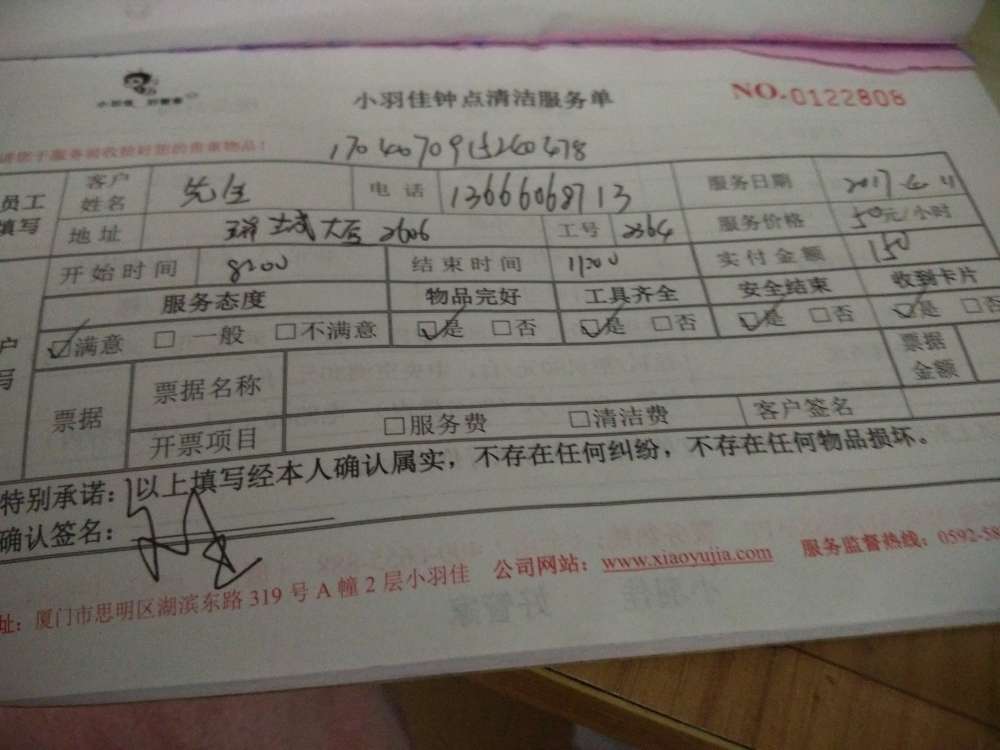 小羽佳 好管家
小羽佳钟点清洁服务单
NO.0122808
请您于服务前收捡好您的贵重物品!
员工填写 客户姓名 先生 电话 13666068713 服务日期 2017 4
地址 大厦2606 工号 2364 服务价格 50元/小时
开始时间 8:00 结束时间 11:00 实付金额 150
服务态度 物品完好 工具齐全 安全结束 收到卡片
☑满意 □一般 □不满意 ☑是 □否 ☑是 □否 ☑是 □否 ☑是 □否
票据 票据名称 票据金额
开票项目 □服务费 □清洁费 客户签名
特别承诺:以上填写经本人确认属实,不存在任何纠纷,不存在任何物品损坏。
确认签名:
址:厦门市思明区湖滨东路319号A幢2层小羽佳 公司网站:www.xiaoyujia.com 服务监督热线:0592-58